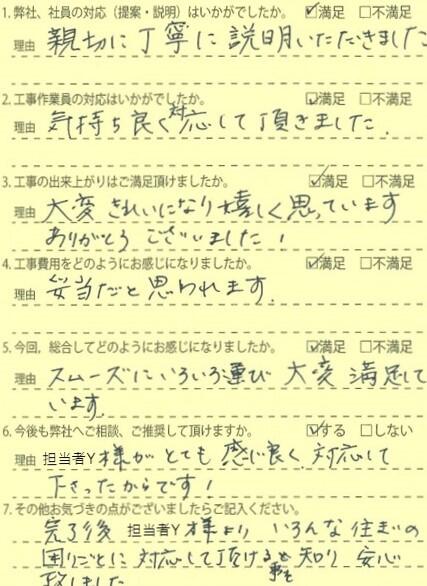 1. 弊社、社員の対応（提案・説明）はいかがでしたか。 ☑満足 □不満足
理由 親切に丁寧に説明いただきました
2. 工事作業員の対応はいかがでしたか。 ☑満足 □不満足
理由 気持ち良く対応して頂きました。
3. 工事の出来上がりはご満足頂けましたか。 ☑満足 □不満足
理由 大変きれいになり嬉しく思っています
ありがとうございました！
4. 工事費用をどのようにお感じになりましたか。 ☑満足 □不満足
理由 妥当だと思われます。
5. 今回，総合してどのようにお感じになりましたか。 ☑満足 □不満足
理由 スムーズにいろいろ運び 大変 満足して
います。
6. 今後も弊社へご相談、ご推奨して頂けますか。 ☑する □しない
理由 担当者Y様がとても感じ良く対応して
下さったからです！
7. その他お気づきの点がございましたらご記入ください。
完了後 担当者Y 様より いろんな住まいの
困りごとに対応して頂ける事を知り 安心
致しました